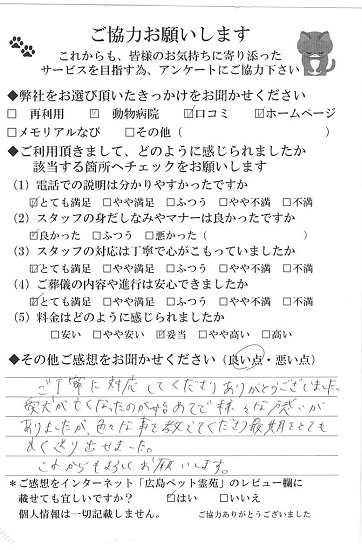 ご協力お願いします
これからも、皆様のお気持ちに寄り添った
サービスを目指す為、アンケートにご協力下さい
◆弊社をお選び頂いたきっかけをお聞かせください
□ 再利用 ☑ 動物病院 ☑口コミ ☑ホームページ
□メモリアルなび □その他（ ）
◆ご利用頂きまして、どのように感じられましたか
該当する箇所へチェックをお願いします
(1) 電話での説明は分かりやすかったですか
☑とても満足 □やや満足 □ふつう □やや不満 □不満
(2) スタッフの身だしなみやマナーは良かったですか
☑良かった □ふつう □悪かった（ ）
(3) スタッフの対応は丁寧で心がこもっていましたか
☑とても満足 □やや満足 □ふつう □やや不満 □不満
(4) ご葬儀の内容や進行は安心できましたか
☑とても満足 □やや満足 □ふつう □やや不満 □不満
(5) 料金はどのように感じられましたか
□安い □やや安い ☑妥当 □やや高い □高い
◆その他ご感想をお聞かせください（良い点・悪い点）
ご丁寧に対応してくださりありがとうございました。
愛犬が亡くなったのが初めてで様々な
ありましたが、色々な事を教えてくださり最期をとても
良く送り出せました。
これからもよろしくお願いします。
＊ご感想をインターネット「広島ペット霊苑」のレビュー欄に
載せても宜しいですか？ ☑はい □いいえ
個人情報は一切記載しません。 ご協力ありがとうございました